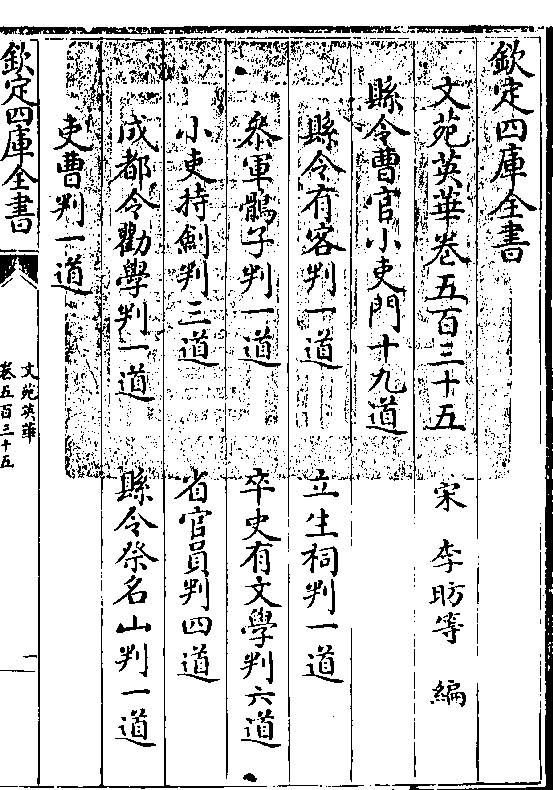 欽定四庫全書
文苑英華卷五百三十五　宋　李昉等　編
縣令曹官小吏門十九道
縣令有客判一道　立生祠判一道
叅軍鶻子判一道　卒史有文學判六道
小吏持劍判三道　省官員判四道
成都令勸學判一道　縣令祭名山判一道
吏曹判一道
欽定四庫全書
文苑英華
卷五百三十五
一